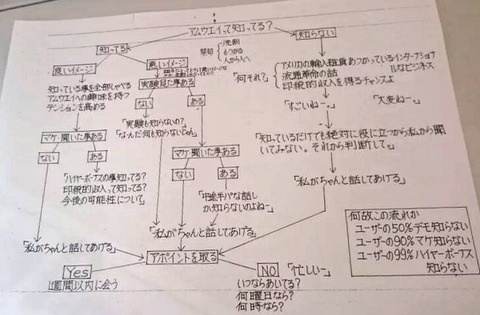 アムウェイって知ってる?
知ってる
知らない
良いイメージ
悪いイメージ
洗剤
もうかる
人から人へ
知っている事を全部しゃべる
アムウェイへの興味を持つ
テンションを高める
実験見た事ある
ない
ある
「何それ?」
アメリカの輸入雑貨あつかっているインターナショナルなビジネス
流通革命の話
印税的収入を得るチャンスよ
「すごいねー」
「大変ねー」
「実験も知らないの?
「なんだ何も知らないじゃん」
マケ・聞いた事ある
ない
ある
マケ・聞いた事ある
ない
ある
「知っているだけでも絶対に役に立つから私から聞
いてみない。それから判断して。」
「ハイヤーボーナスの事知ってる?
印税的収入って知ってる?
今後の可能性について
「中途半パな話し
しか知らないのよねー」
「私がちゃんと話してあげる」
「私がちゃんと話してあげる」
「私がちゃんと話してあげる」
アポイントを取る
Yes
1週間以内に会う
NO
「忙しいー」
いつならあいてる?
何曜日なら?
何時なら?
何故この流れか
ユーザーの50%デモ知らない
ユーザーの90%マケ知らない
ユーザーの99%ハイヤーボーナス
知らない